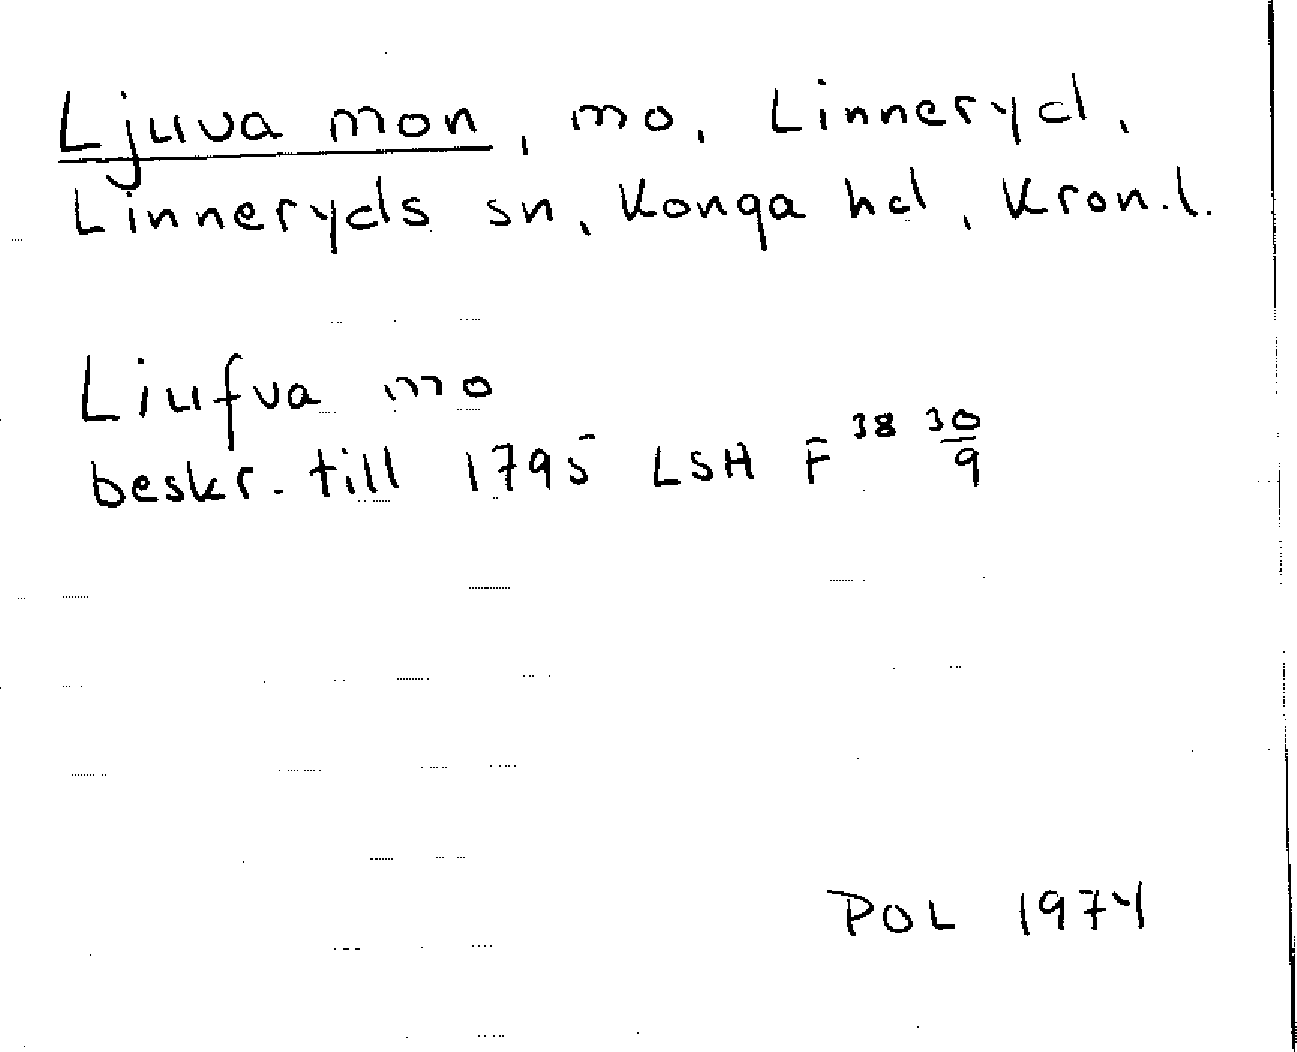 Ljuva mon, mo, Linneryd,
Linneryds sn, Konga hd, Kron.l.
Liufva mo
beskr. till 1795 LSH F 38 30/9
POL 1974